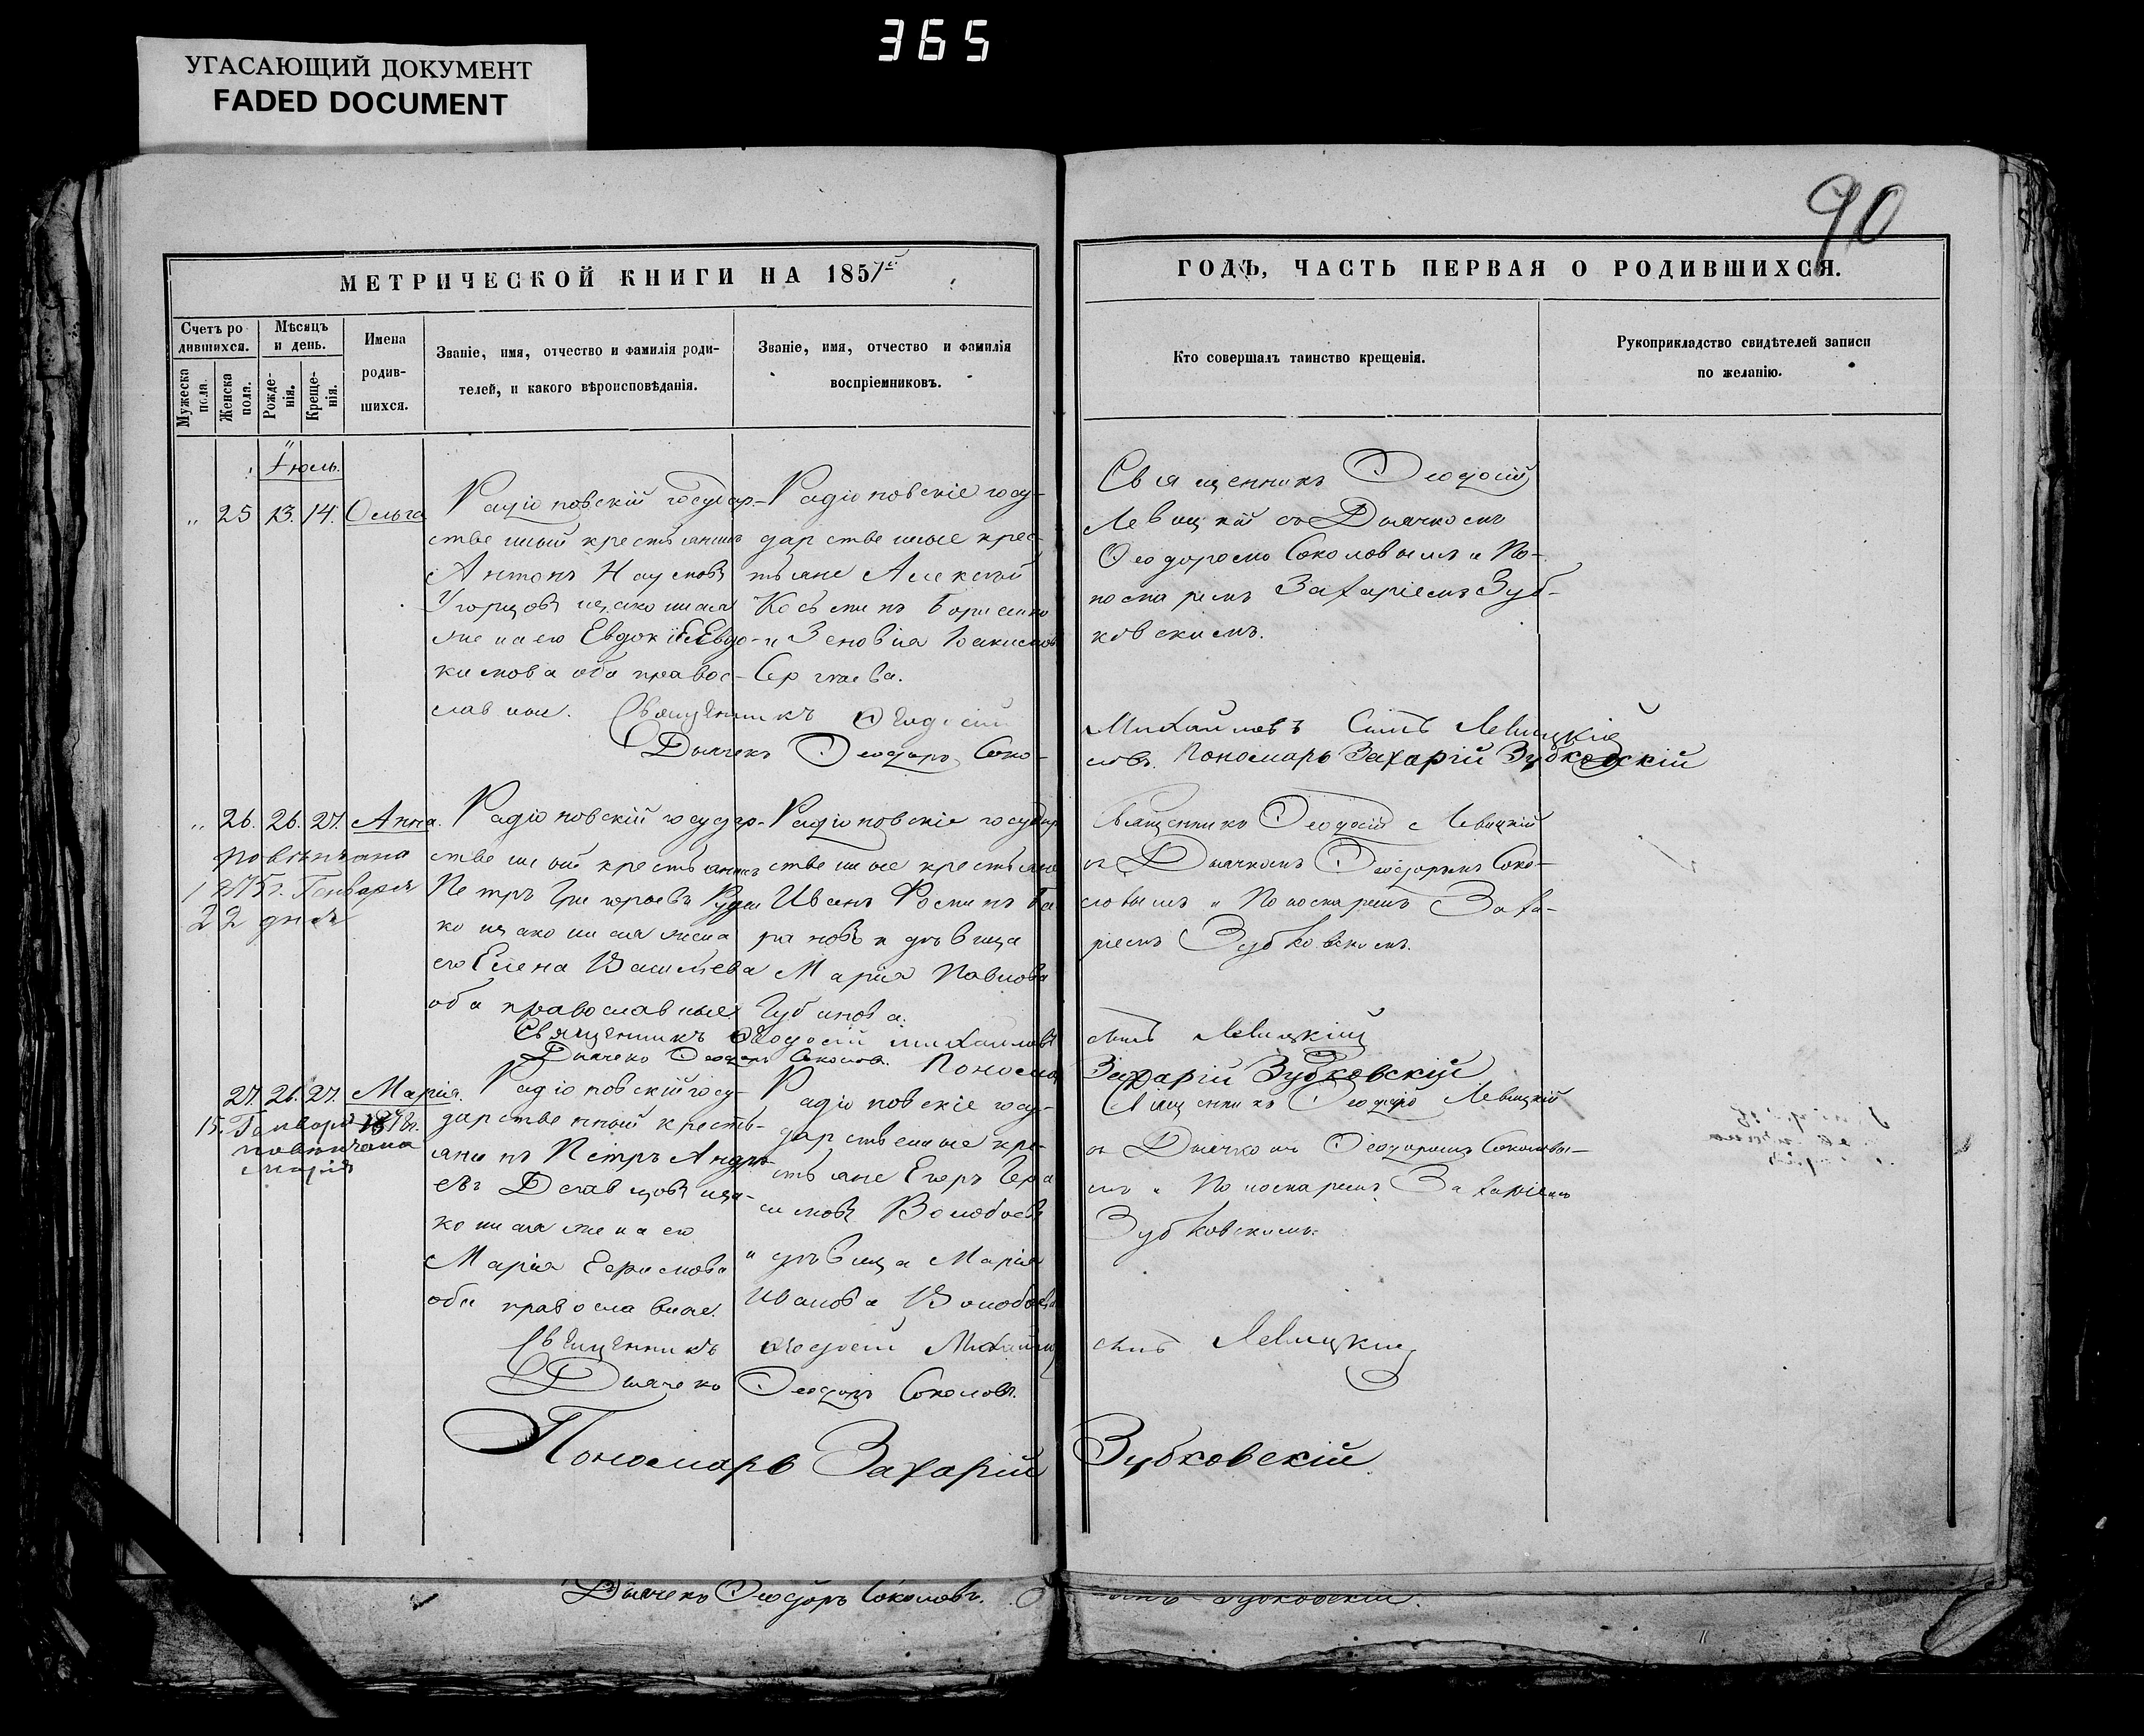 365
УГАСАЮЩИЙ ДОКУМЕНТ
FADED DOCUMENT
90
МЕТРИЧЕСКОЙ КНИГИ НА 1857й
ГОДЪ, ЧАСТЬ ПЕРВАЯ О РОДИВШИХСЯ.
Счетъ ро
дившихся.
Мужеска
пола.
Женска
пола.
Мѣсяцъ
и день.
Рожде-
нія.
Креще-
нія.
Имена
родив-
шихся.
Званіе, имя, отчество и фамилія роди-
телей, и какого вѣроисповѣданія.
Званіе, имя, отчество и фамилія
воспріемниковъ.
Кто совершалъ таинство крещенія.
Рукоприкладство свидѣтелей записи
по желанію.
Іюль.
„ 25 13. 14. Ольга
Радіоновскій государ-
ственный крестьянинъ
Антонъ Наумовъ
законная
жена его Евдокія Евдо-
кимова оба правос-
лавные.
Радіоновскіе госу-
дарственные крес-
тьяне Алексѣй
Косьминъ
и Зеновія
Сергѣева.
Священникъ Ѳеодосій
Левицкій съ Дьячкомъ
Ѳеодоромъ Соколовымъ и По-
номаремъ Захаріемъ Зуб-
ковскимъ.
Священникъ Ѳеодосій
Михаиловъ сынъ Левицкій
Дьячекъ Ѳеодоръ Соко-
ловъ. Пономарь Захарій Зубковскій
„ 26. 26. 27. Анна.
повѣнчана
1875г. Генваря
22 дня
Радіоновскій государ-
ственный крестьянинъ
Петръ Григорьевъ
ко законная жена
его Елена Васильева
оба православные.
Радіоновскіе государ
ственные крестьяне
Иванъ Фоминъ Ба
рановъ и дѣвица
Марія Павлова
Губанова.
Священникъ Ѳеодосій Левицкій
съ Дьячкомъ Ѳеодоромъ Соко-
ловымъ и Пономаремъ Заха-
ріемъ Зубковскимъ.
Священникъ Ѳеодосій Михаиловъ
сынъ Левицкій
Дьячекъ Ѳеодоръ Соколовъ. Пономарь
Захарій Зубковскій
27. 26. 27. Марія.
15. Генваря
повѣнчана
Марія
Радіоновскій госу-
дарственный кресть-
янинъ Петръ Андре-
евъ зако-
нная жена его
Марія Ефимова
оба православные.
Радіоновскіе госу-
дарственные кре-
стьяне Егоръ Гера
симовъ Волобоевъ
и дѣвица Марія
Иванова Волобоева
Священникъ Левицкій
съ Дьячкомъ Ѳеодоромъ Соколовы-
мъ и Пономаремъ Захаріемъ
Зубковскимъ.
Священникъ Ѳеодосій Михайловъ
сынъ Левицкій
Дьячекъ Ѳеодоръ Соколовъ.
Пономарь Захарій Зубковскій
Дьячекъ Ѳеодоръ Соколовъ.
Зубковскій.